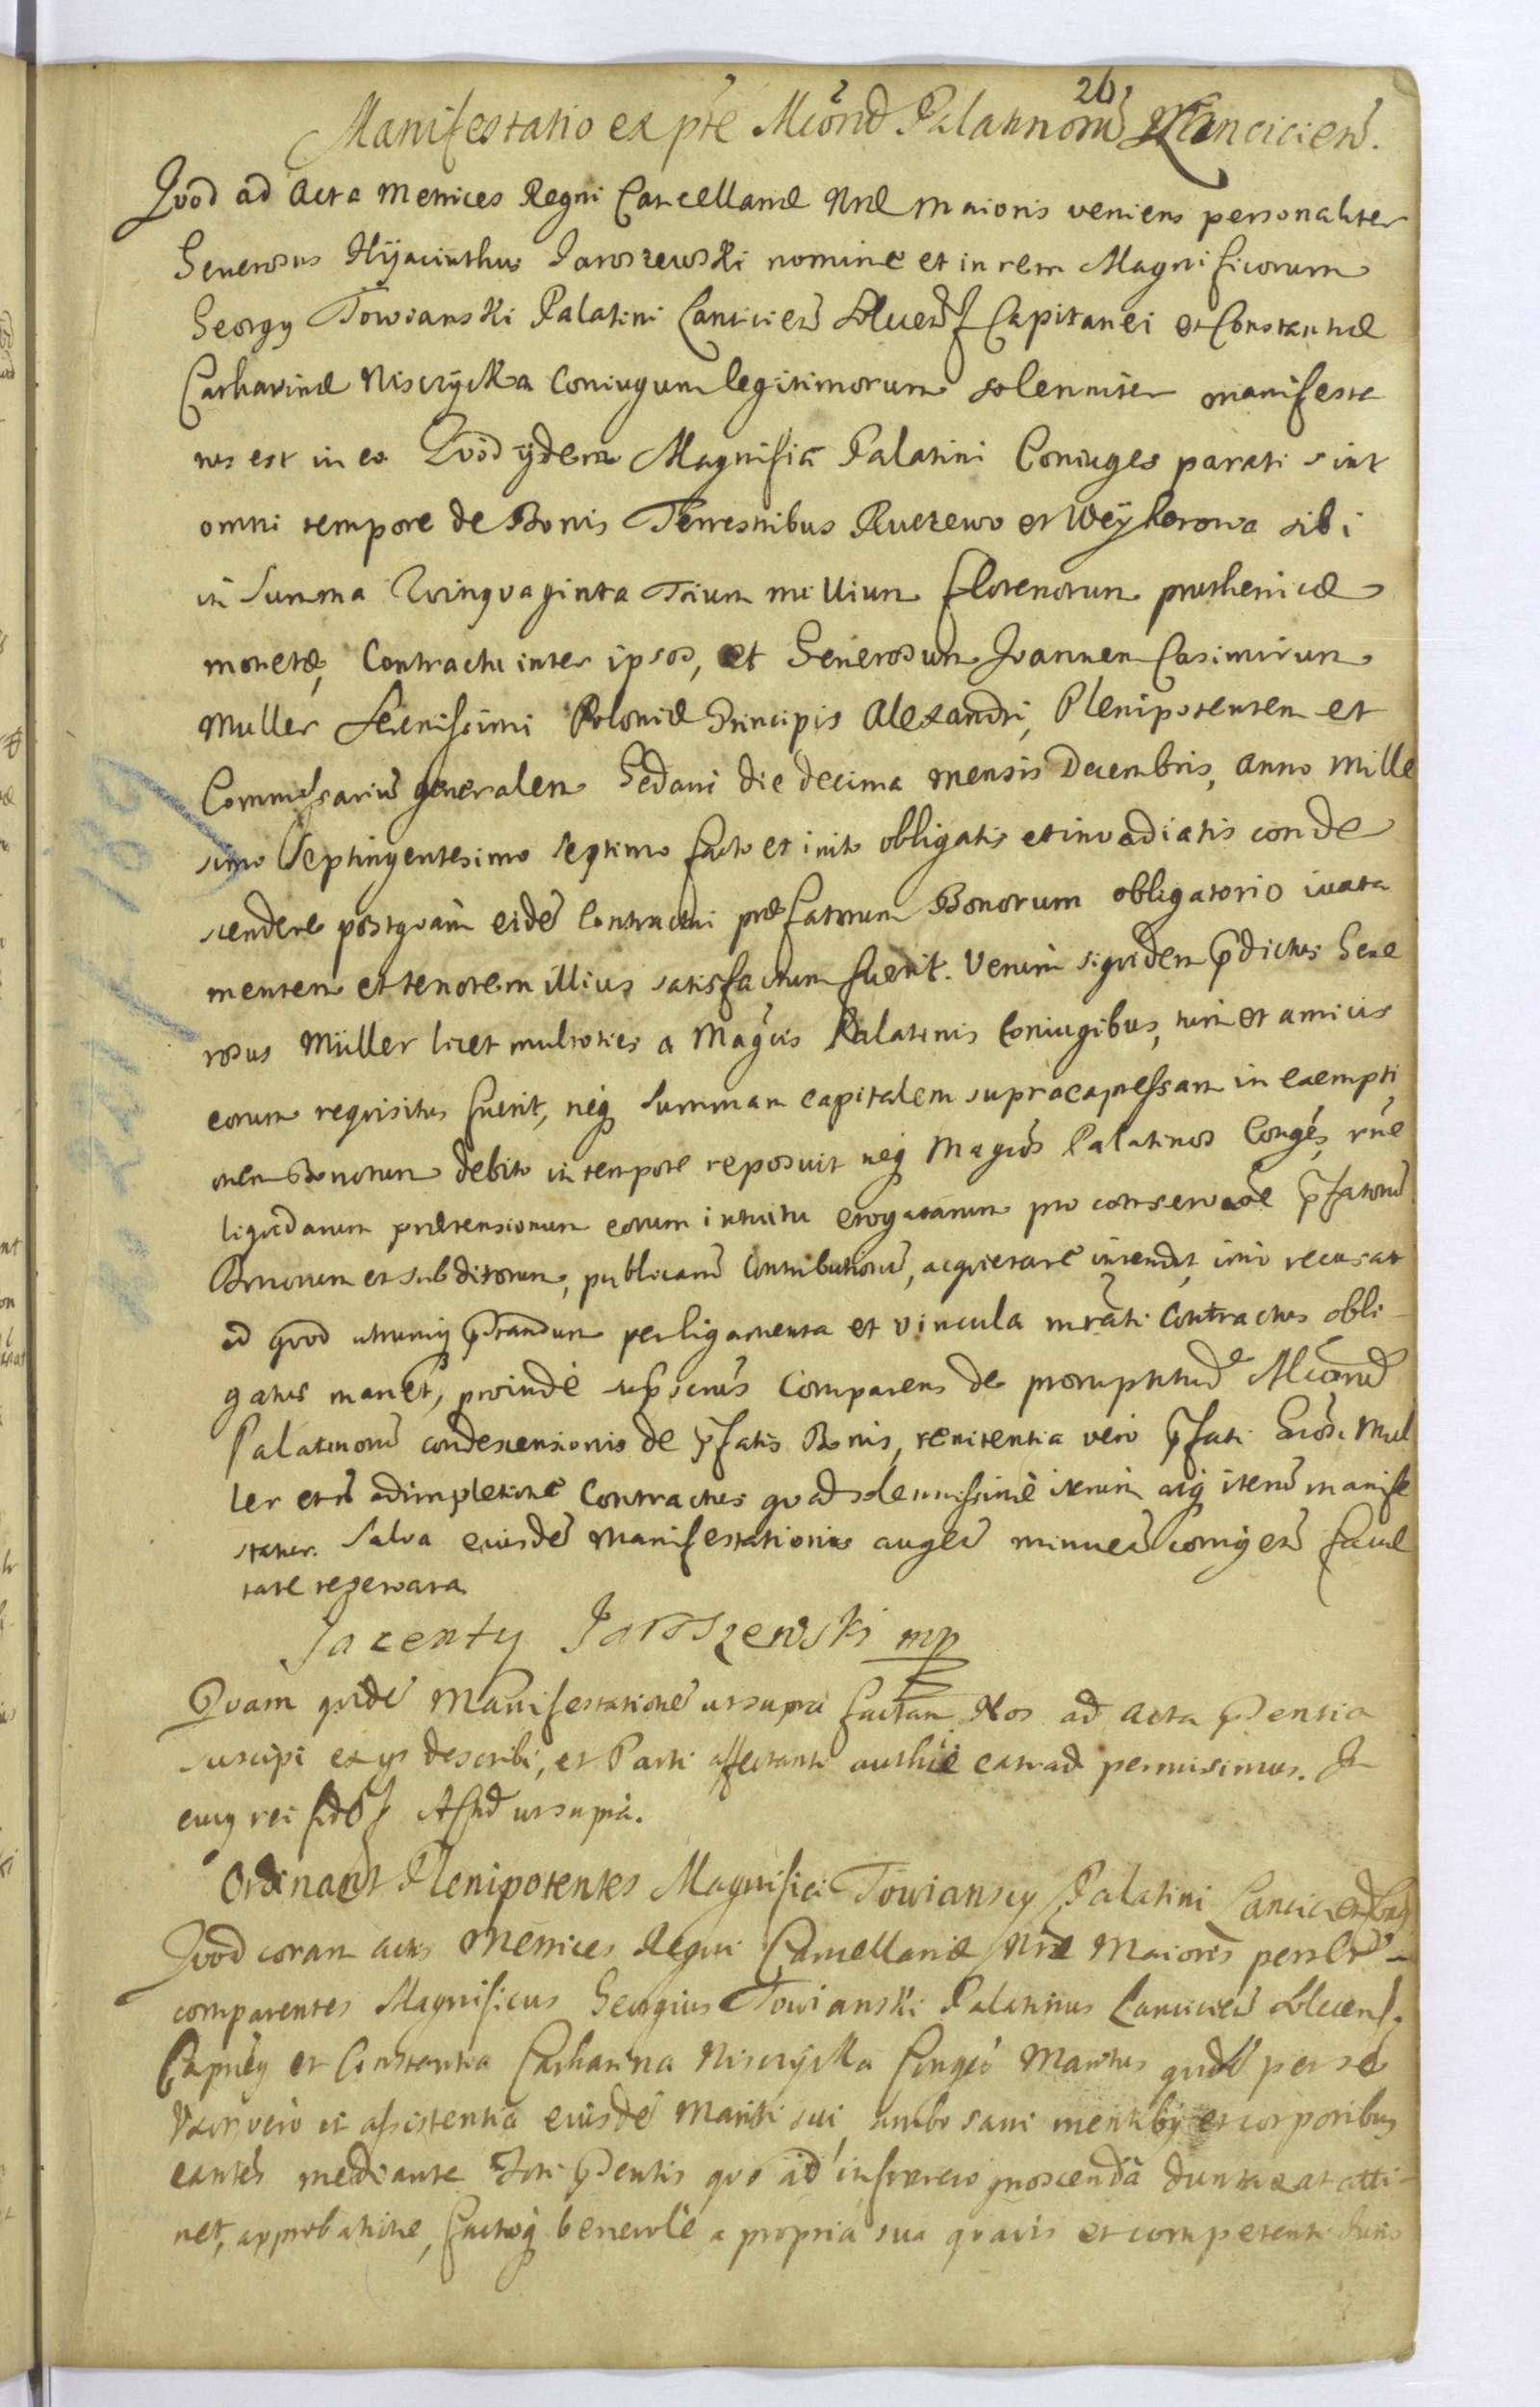 26
Manifestatio ex pte Mcorũ Palatinorũ Lancicien.
Quod ad Acta Metrices Regni Cancellariæ Nræ Maioris veniens personaliter
Generosus Hyacinthus Jaroszewski nomine et in rem Magnificorum
Georgy Towianski Palatini Lancicien Capitanei et Constantiæ
Catharinæ Nisczycka Coniugum legitimorum solenniter manifesta
tus est in eo Quod ijdem Magnifici Palatini Coniuges parati sint
omni tempore de Bonis Terrestribus Rucewo et Weyherowa sibi
in Summa Quinquaginta Trium millium florenorum pruthenicæ
monetæ, Contractu inter ipsos, et Generosum Joannem Casimirum
Muller Serenissimi Poloniæ Principis Alexandri, Plenipotentem et
Commissariũ generalem Gedani die decima mensis Decembris, anno mille
simo Septingentesimo septimo facto et inito obligatis et invadiatis conde
scendere postquam eidẽ Contractui præfatorum Bonorum obligatorio iuxta
mentem et tenorem illius satisfactum fuerit. Verum siquidem pdictus Gene
rosus Müller licet multoties a Magcis Palatinis Coniugibus, tum et amicis
eorum requisitus fuerit, neq Summam capitalem supraexpressam in exempti
onem Bonorum debito in tempore reposuit neq Magcos Palatinos Conges, rne
liquidarum prætensionum eorum intuitu erogatarum pro conservaõe pfatorũ
Bonorum et subditorum, publicarũ Contributionũ, acquietare intendit, imo recusat
ad quod utrumq pstandum per ligamenta et vincula mrati Contractus obli-
gatus manet, proinde Comparens de promptitudẽ Mcorũ
Palatinorũ condescensionis de pfatis Bonis, renitentia vero pfati Gnosi Mul
ler et adimpletione Contractus quad solennissime iterum atq iterũ manife
statur. Salva eiusdẽ Manifestationis augeñ minueñ corrigeñ facul
tate reservata
Jacenty Jaroszewski mp
Quam quidẽ Manifestationẽ ut supra factam Nos ad Acta pñtia
suscipi ex ys describi, et Parti affectanti authce extrad permisimus. In
cuius rei fidẽ Act ut supra.
Ordinant Plenipotentes Magnifici Towianscy Palatini Lancicien
Quod coram actis Metrices Regni Cancellariæ Nræ Maioris
comparentes Magnificus Georgius Towianski Palatinus Lancicien
Capneus et Constantia Catharina Nisczycka Conges Maritus quidẽ per se
Uxor vero in assistentia eiusdẽ Mariti sui, ambo sani mentibus et corporibus
eantes mediante pntis quo ad infrarecognoscenda duntaxat atti-
net, approbatione, factoq benevole a propria sua quavis et competenti Juris